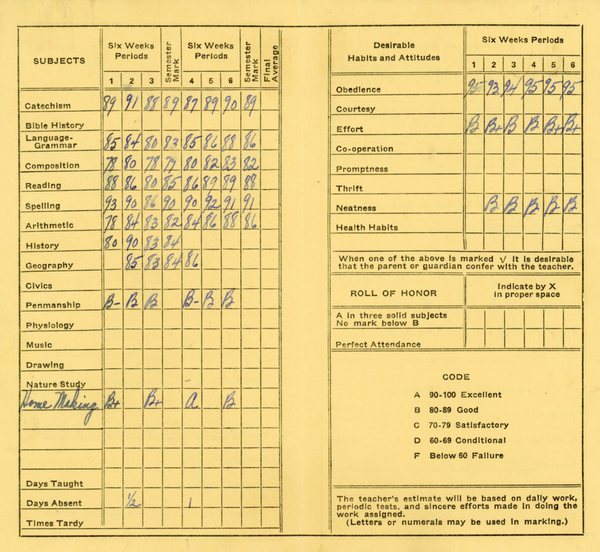 SUBJECTS Six Weeks Periods Semester Mark Six Weeks Periods Semester Mark Final Average
1 2 3 4 5 6
Catechism 89 91 88 89 87 89 90 89
Bible History
Language-Grammar 85 84 80 83 85 86 88 86
Composition 78 80 78 79 80 82 83 82
Reading 88 86 80 85 86 89 89 88
Spelling 93 90 86 90 90 92 91 91
Arithmetic 78 84 83 82 84 86 88 86
History 80 90 83 84
Geography 85 83 84 86
Civics
Penmanship B- B B B- B B
Physiology
Music
Drawing
Nature Study
Home Making B+ B+ A B
Days Taught
Days Absent 1/2 1
Times Tardy
Desirable Habits and Attitudes Six Weeks Periods
1 2 3 4 5 6
Obedience 95 93 94 95 95 95
Courtesy
Effort B B+ B B B+ B+
Co-operation
Promptness
Thrift
Neatness B B B B B
Health Habits
When one of the above is marked √ it is desirable
that the parent or guardian confer with the teacher.
ROLL OF HONOR Indicate by X in proper space
A in three solid subjects
No mark below B
Perfect Attendance
CODE
A 90-100 Excellent
B 80-89 Good
C 70-79 Satisfactory
D 60-69 Conditional
F Below 60 Failure
The teacher's estimate will be based on daily work,
periodic tests, and sincere efforts made in doing the
work assigned.
(Letters or numerals may be used in marking.)